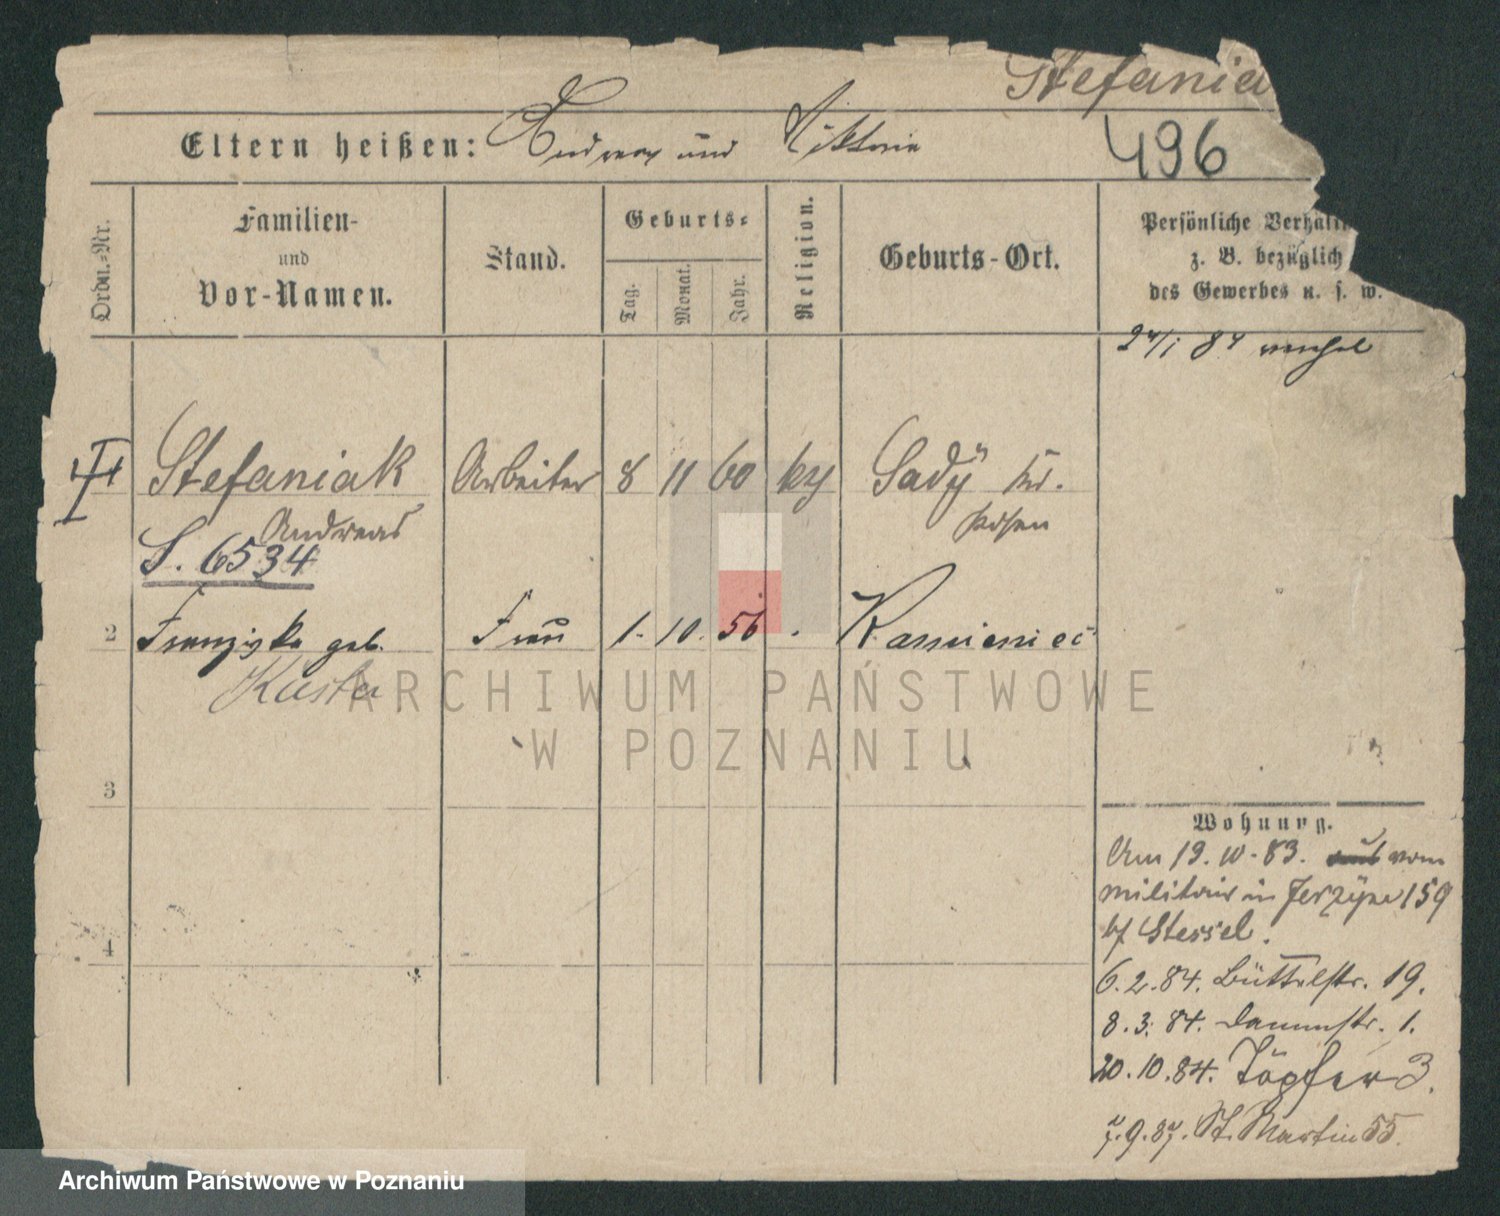 Stefania
Eltern heißen: Andreas und Viktoria
496
Ordn.-Nr.
Familien-
und
Vor-Namen.
Stand.
Geburts-
Tag.
Monat.
Jahr.
Religion.
Geburts-Ort.
Persönliche Verhält
z. B. bezüglich
des Gewerbes u. s. w.
24/1 84
Stefaniak Arbeiter 8 11 60 Sady Kr.
Andreas Posen
S. 6534
2 Franziska geb. Frau 1. 10. 56 Kamieniec
Kasta
3
4
Wohnung.
Am 19. 10. 83. vom
Militair in Jerzyce 159
b/ Stessel.
6. 2. 84. Büttelstr. 19.
8. 3. 84. Dammstr. 1.
20. 10. 84. Töpfer 3.
7. 9. 87. St. Martin 55.
ARCHIWUM PAŃSTWOWE
W POZNANIU
Archiwum Państwowe w Poznaniu